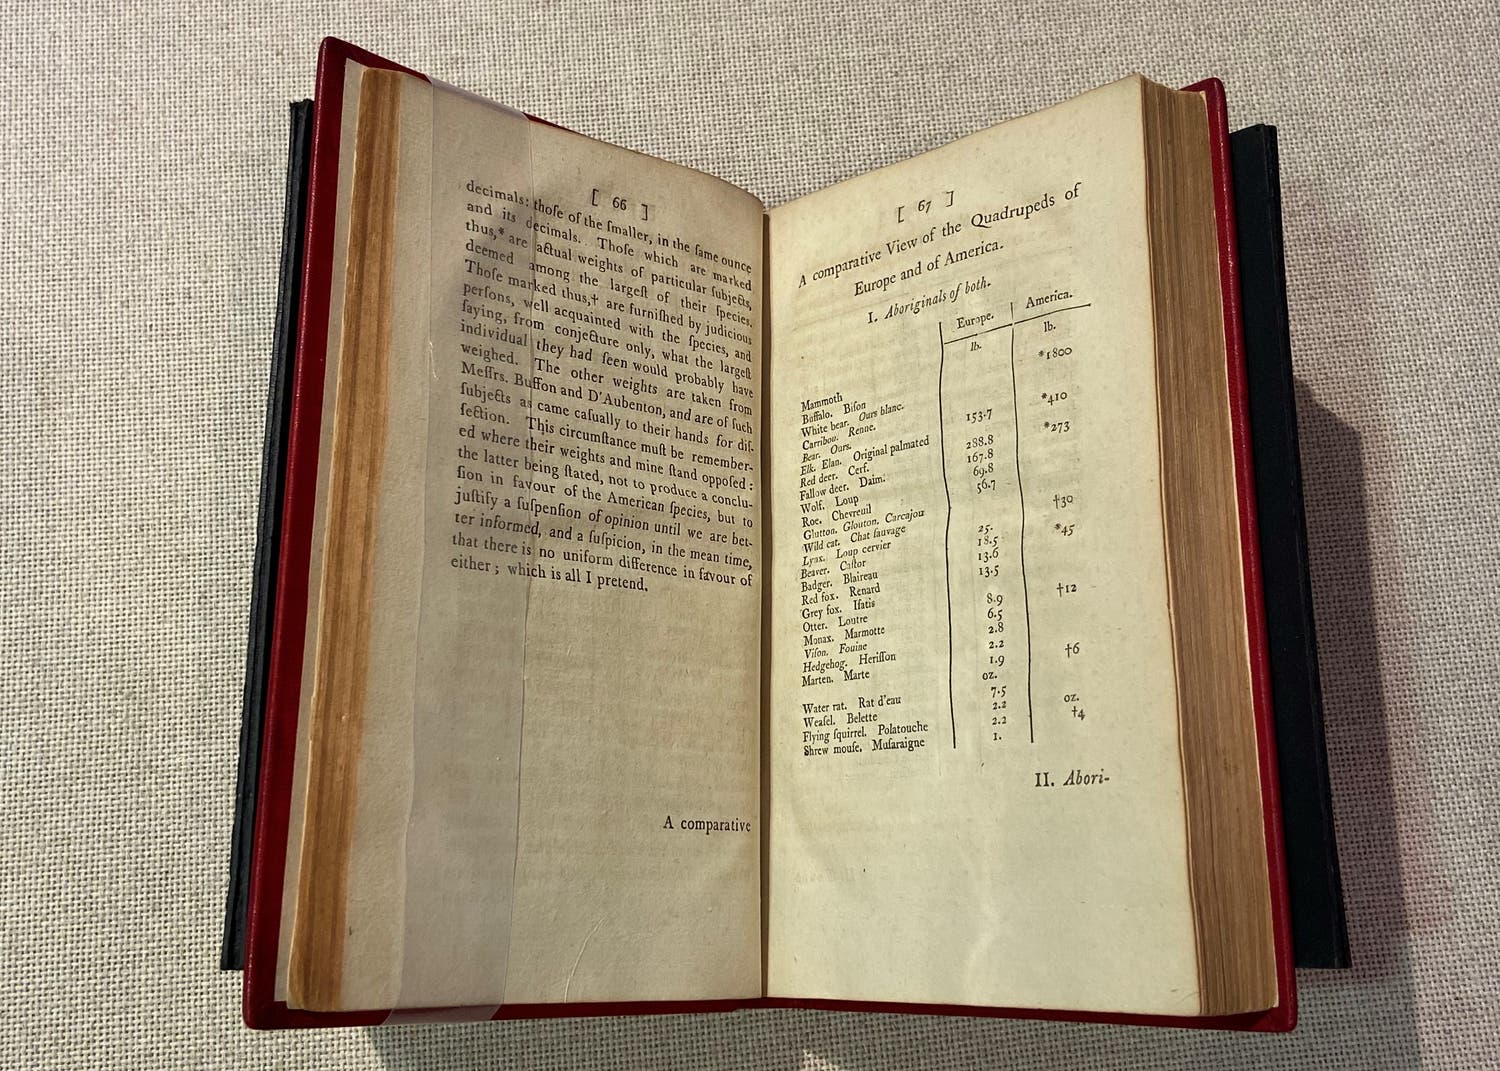 [ 66 ]
decimals: thoſe of the ſmaller, in the ſame ounce
and its decimals. Thoſe which are marked
thus,* are actual weights of particular ſubjects,
deemed among the largeſt of their ſpecies.
Thoſe marked thus,† are furniſhed by judicious
perſons, well acquainted with the ſpecies, and
ſaying, from conjecture only, what the largeſt
individual they had ſeen would probably have
weighed. The other weights are taken from
Meſſrs. Buffon and D'Aubenton, and are of ſuch
ſubjects as came caſually to their hands for diſ-
ſection. This circumſtance muſt be remember-
ed where their weights and mine ſtand oppoſed :
the latter being ſtated, not to produce a conclu-
ſion in favour of the American ſpecies, but to
juſtify a ſuſpenſion of opinion until we are bet-
ter informed, and a ſuſpicion, in the mean time,
that there is no uniform difference in favour of
either ; which is all I pretend.
A comparative
[ 67 ]
A comparative View of the Quadrupeds of
Europe and of America.
I. Aboriginals of both.
Europe. America.
lb. lb.
Mammoth
Buffalo. Biſon *1800
White bear. Ours blanc.
Carribou. Renne.
Bear. Ours. 153.7 *410
Elk. Elan. Original palmated
Red deer. Cerf. 288.8 *273
Fallow deer. Daim. 167.8
Wolf. Loup 69.8
Roe. Chevreuil 56.7
Glutton. Glouton. Carcajou
Wild cat. Chat ſauvage †30
Lynx. Loup cervier 25.
Beaver. Caſtor 18.5 *45
Badger. Blaireau 13.6
Red fox. Renard 13.5
Grey fox. Iſatis
Otter. Loutre 8.9 †12
Monax. Marmotte 6.5
Viſon. Fouine 2.8
Hedgehog. Heriſſon 2.2
Marten. Marte 1.9 †6
oz.
Water rat. Rat d'eau 7.5
Weaſel. Belette 2.2 oz.
Flying ſquirrel. Polatouche 2.2 †4
Shrew mouſe. Muſaraigne 1.
II. Abori-